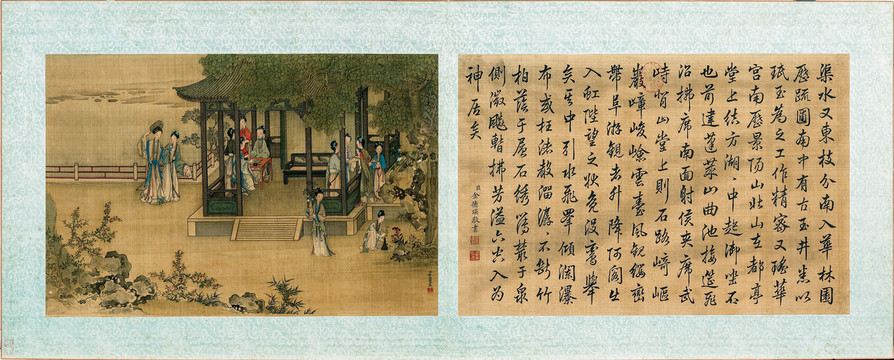 渠水又東枝分南入華林園
歷疏圃南中有古玉井悉以
珉玉為之工作精密又瑤華
宮南歷景陽山北山在都亭
堂上結方湖中起御坐石
也前建蓬萊山曲池接筵飛
沼拂席南面射侯夾席武
峙背山堂上則石路崎嶇
巖嶂峻嶮雲臺風觀纓巒
帶阜游觀者升降阿閣出
入虹陛望之狀鳧沒鸞舉
矣其中引水飛皋傾瀾瀑
布或枉渚聲溜潺潺不斷竹
柏蔭于層石繡薄叢于泉
側微飈暫拂芳溢六空入為
神居矣
臣金德瑛敬書